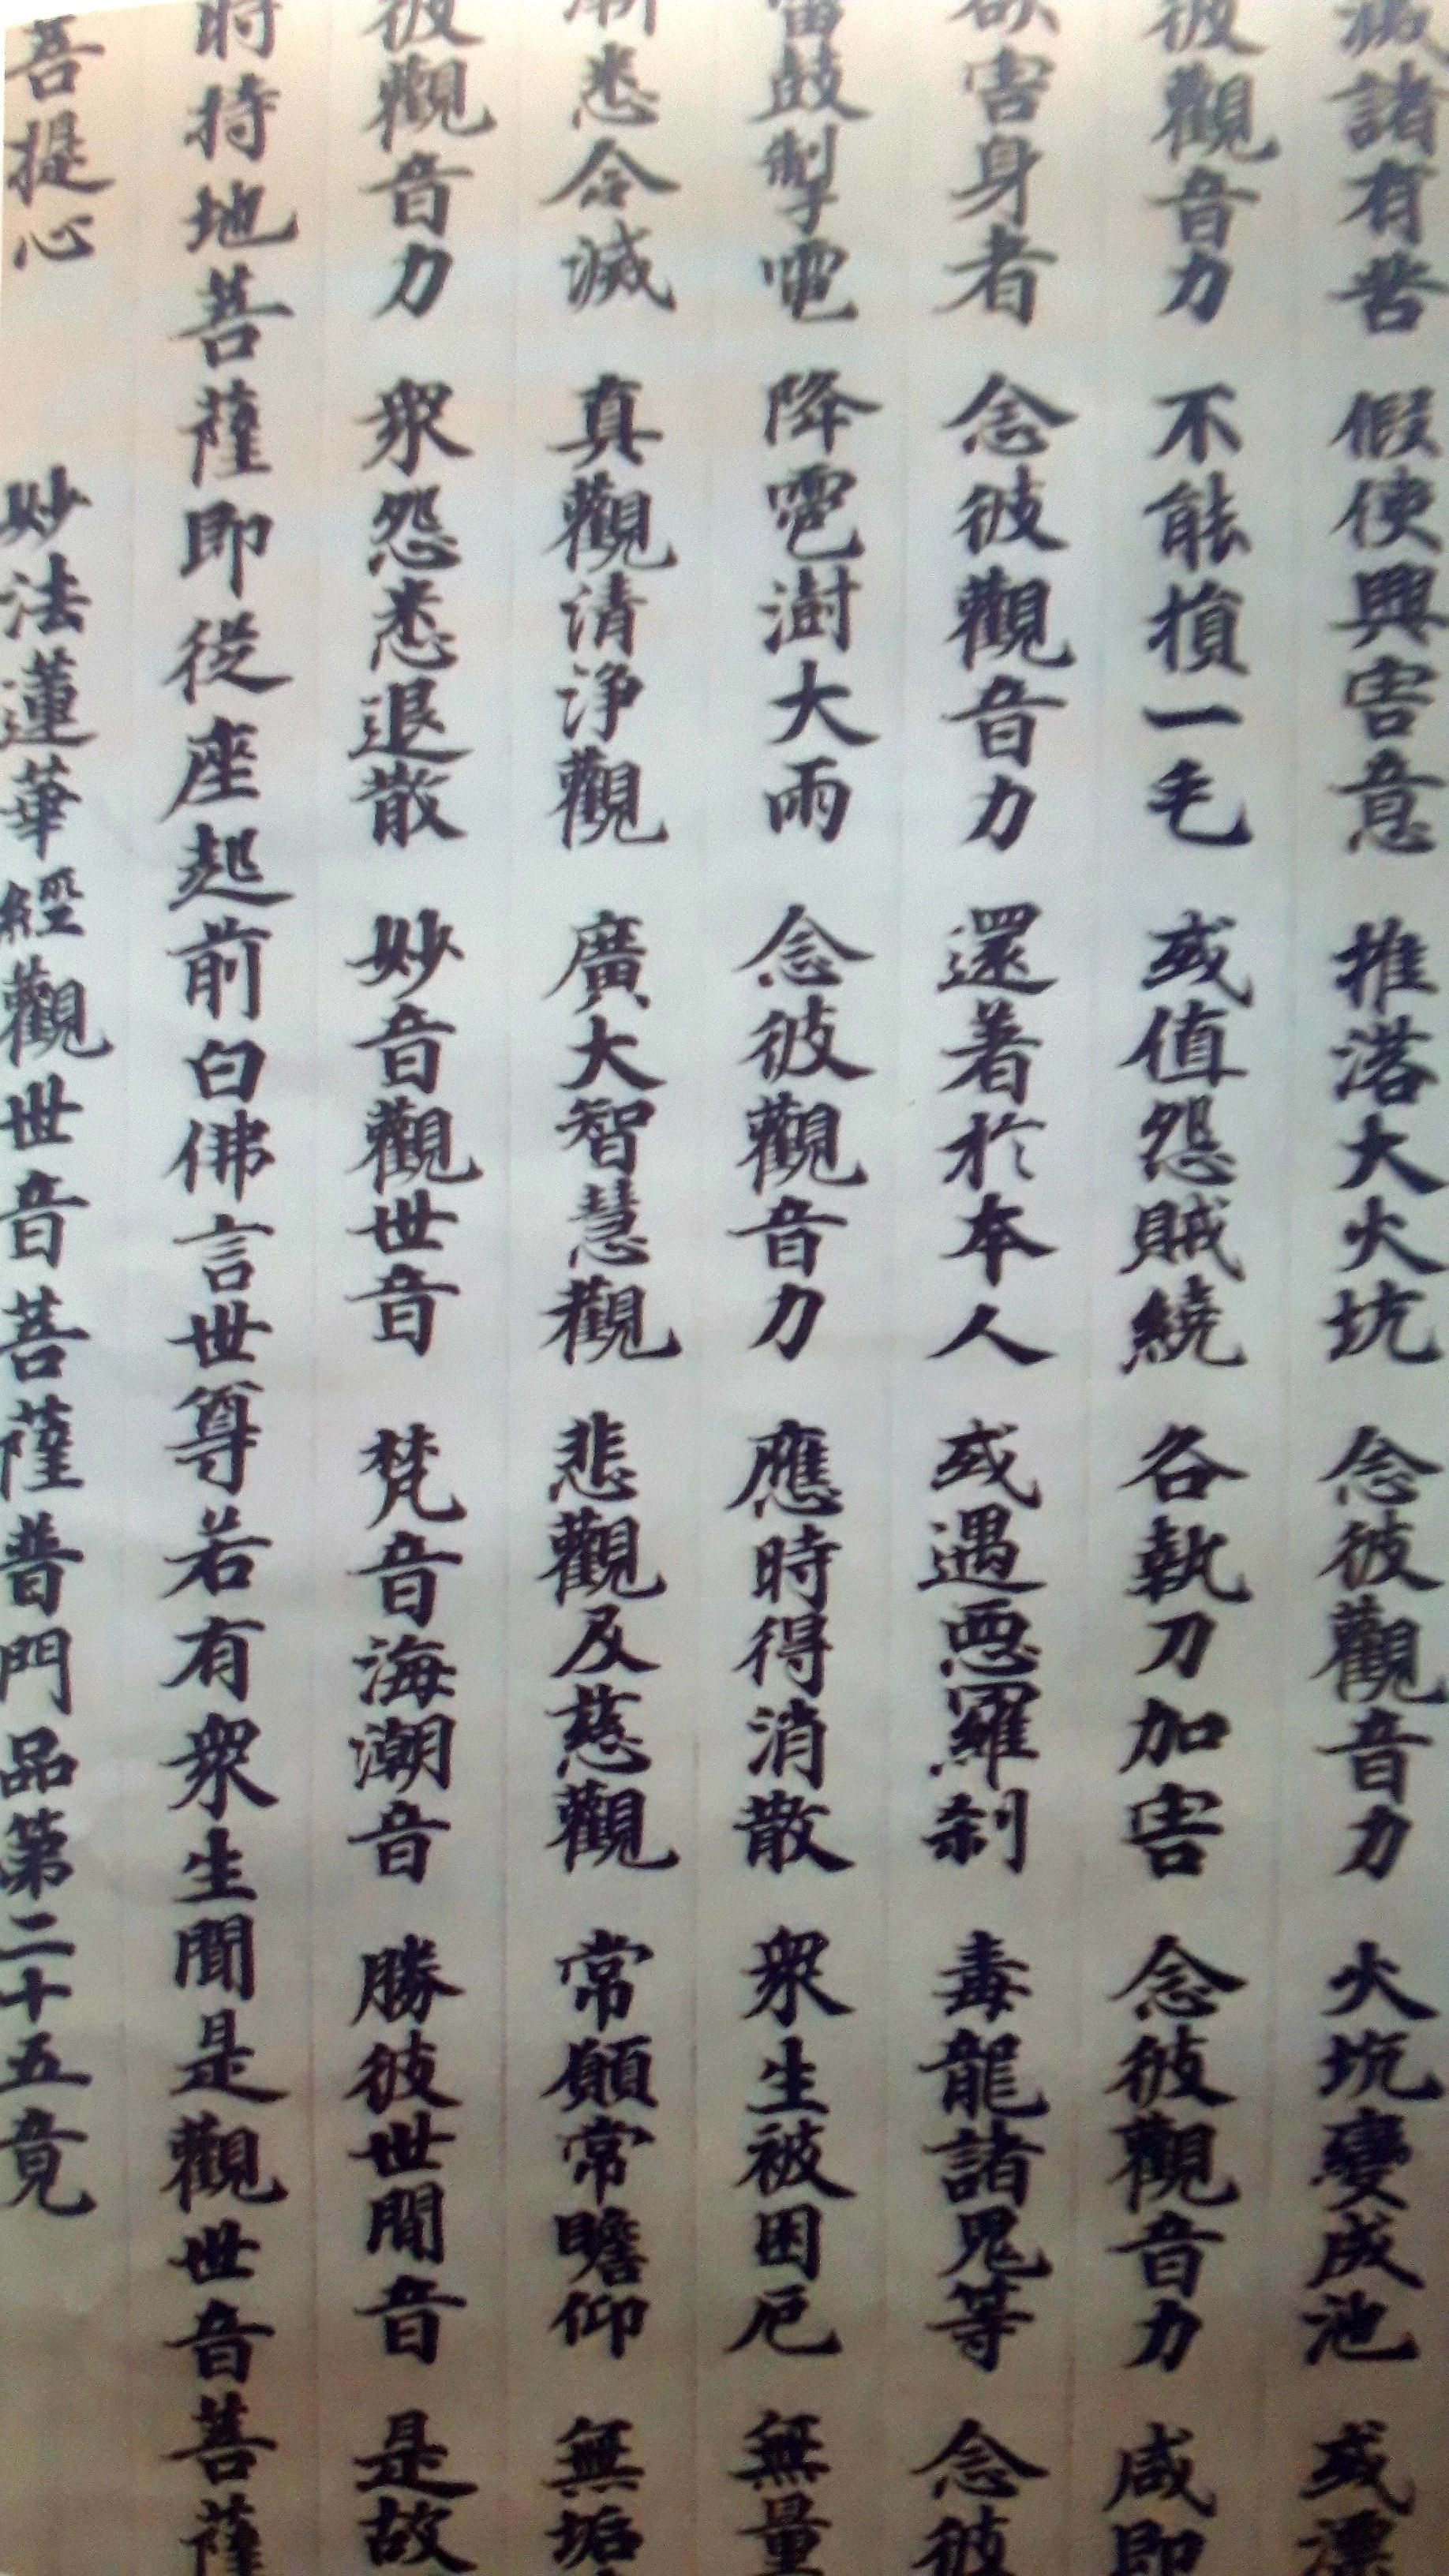 滅諸有苦 假使興害意 推落大火坑 念彼觀音力 火坑變成池 或漂
彼觀音力 不能損一毛 或值怨賊繞 各執刀加害 念彼觀音力 咸即
欲害身者 念彼觀音力 還著於本人 或遇惡羅剎 毒龍諸鬼等 念彼
雷鼓掣電 降雹澍大雨 念彼觀音力 應時得消散 眾生被困厄 無量
漸悉令滅 真觀清淨觀 廣大智慧觀 悲觀及慈觀 常願常瞻仰 無垢
彼觀音力 眾怨悉退散 妙音觀世音 梵音海潮音 勝彼世間音 是故
時持地菩薩即從座起前白佛言世尊若有眾生聞是觀世音菩薩
菩提心 妙法蓮華經觀世音菩薩普門品第二十五竟